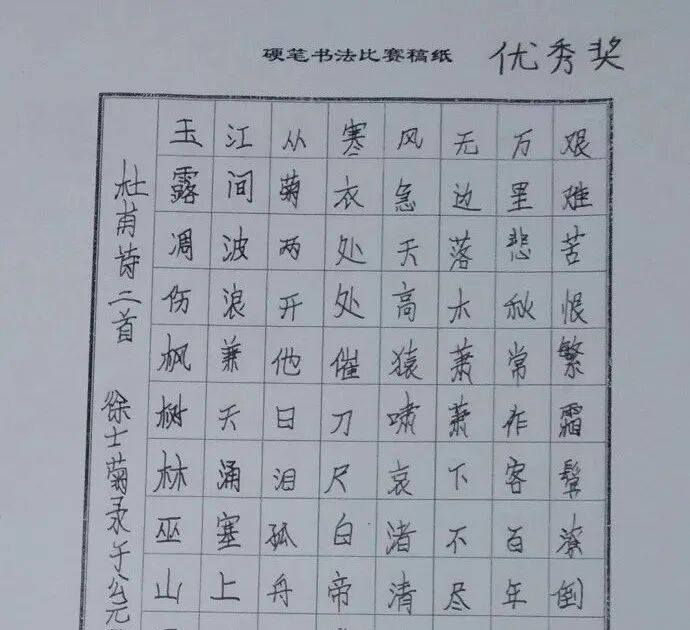 硬笔书法比赛稿纸
优秀奖
杜甫诗二首 徐士菊录于公元
玉露凋伤枫树林巫山
江间波浪兼天涌塞上
从菊两开他日泪孤舟
寒衣处处催刀尺白帝
风急天高猿啸哀渚清
无边落木萧萧下不尽
万里悲秋常作客百年
艰难苦恨繁霜鬓潦倒